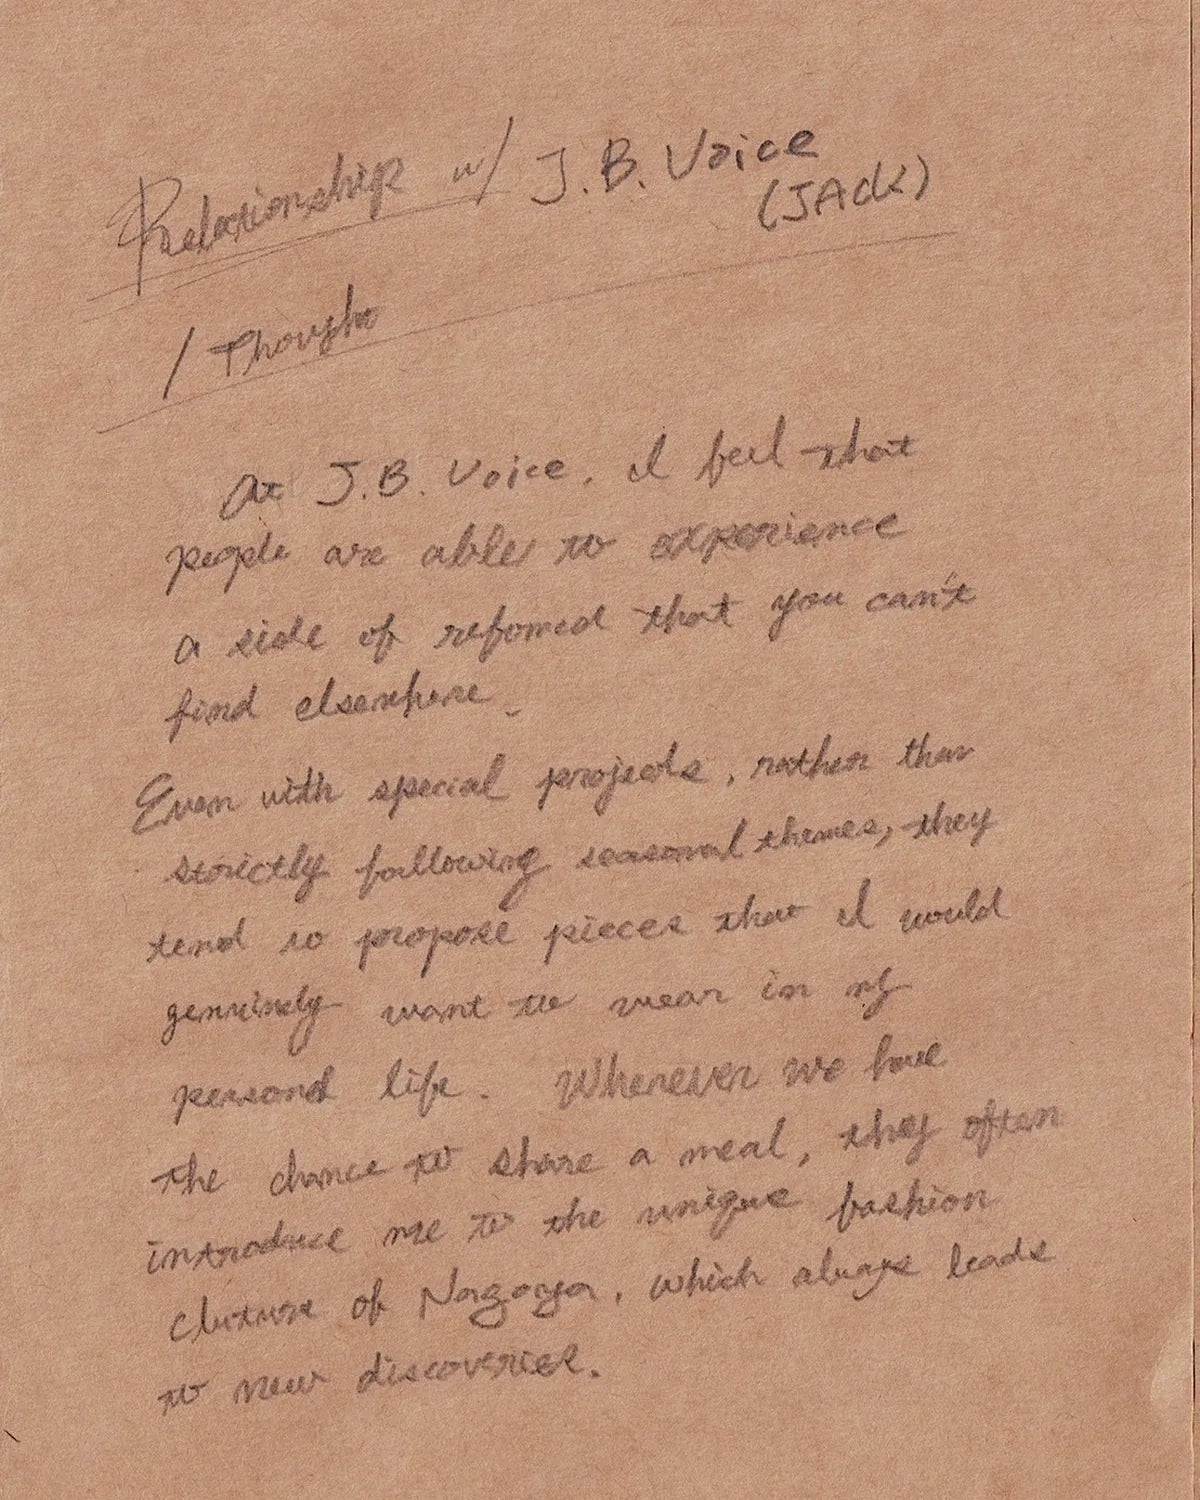 Relationship w/ J.B. Voice
(JACK)
/ Thoughts
At J.B. Voice, I feel that
people are able to experience
a side of refomed that you can't
find elsewhere.
Even with special projects, rather than
strictly following seasonal themes, they
tend to propose pieces that I would
genuinely want to wear in my
personal life. Whenever we have
the chance to share a meal, they often
introduce me to the unique fashion
cluture of Nagoya, which always leads
to new discoveries.